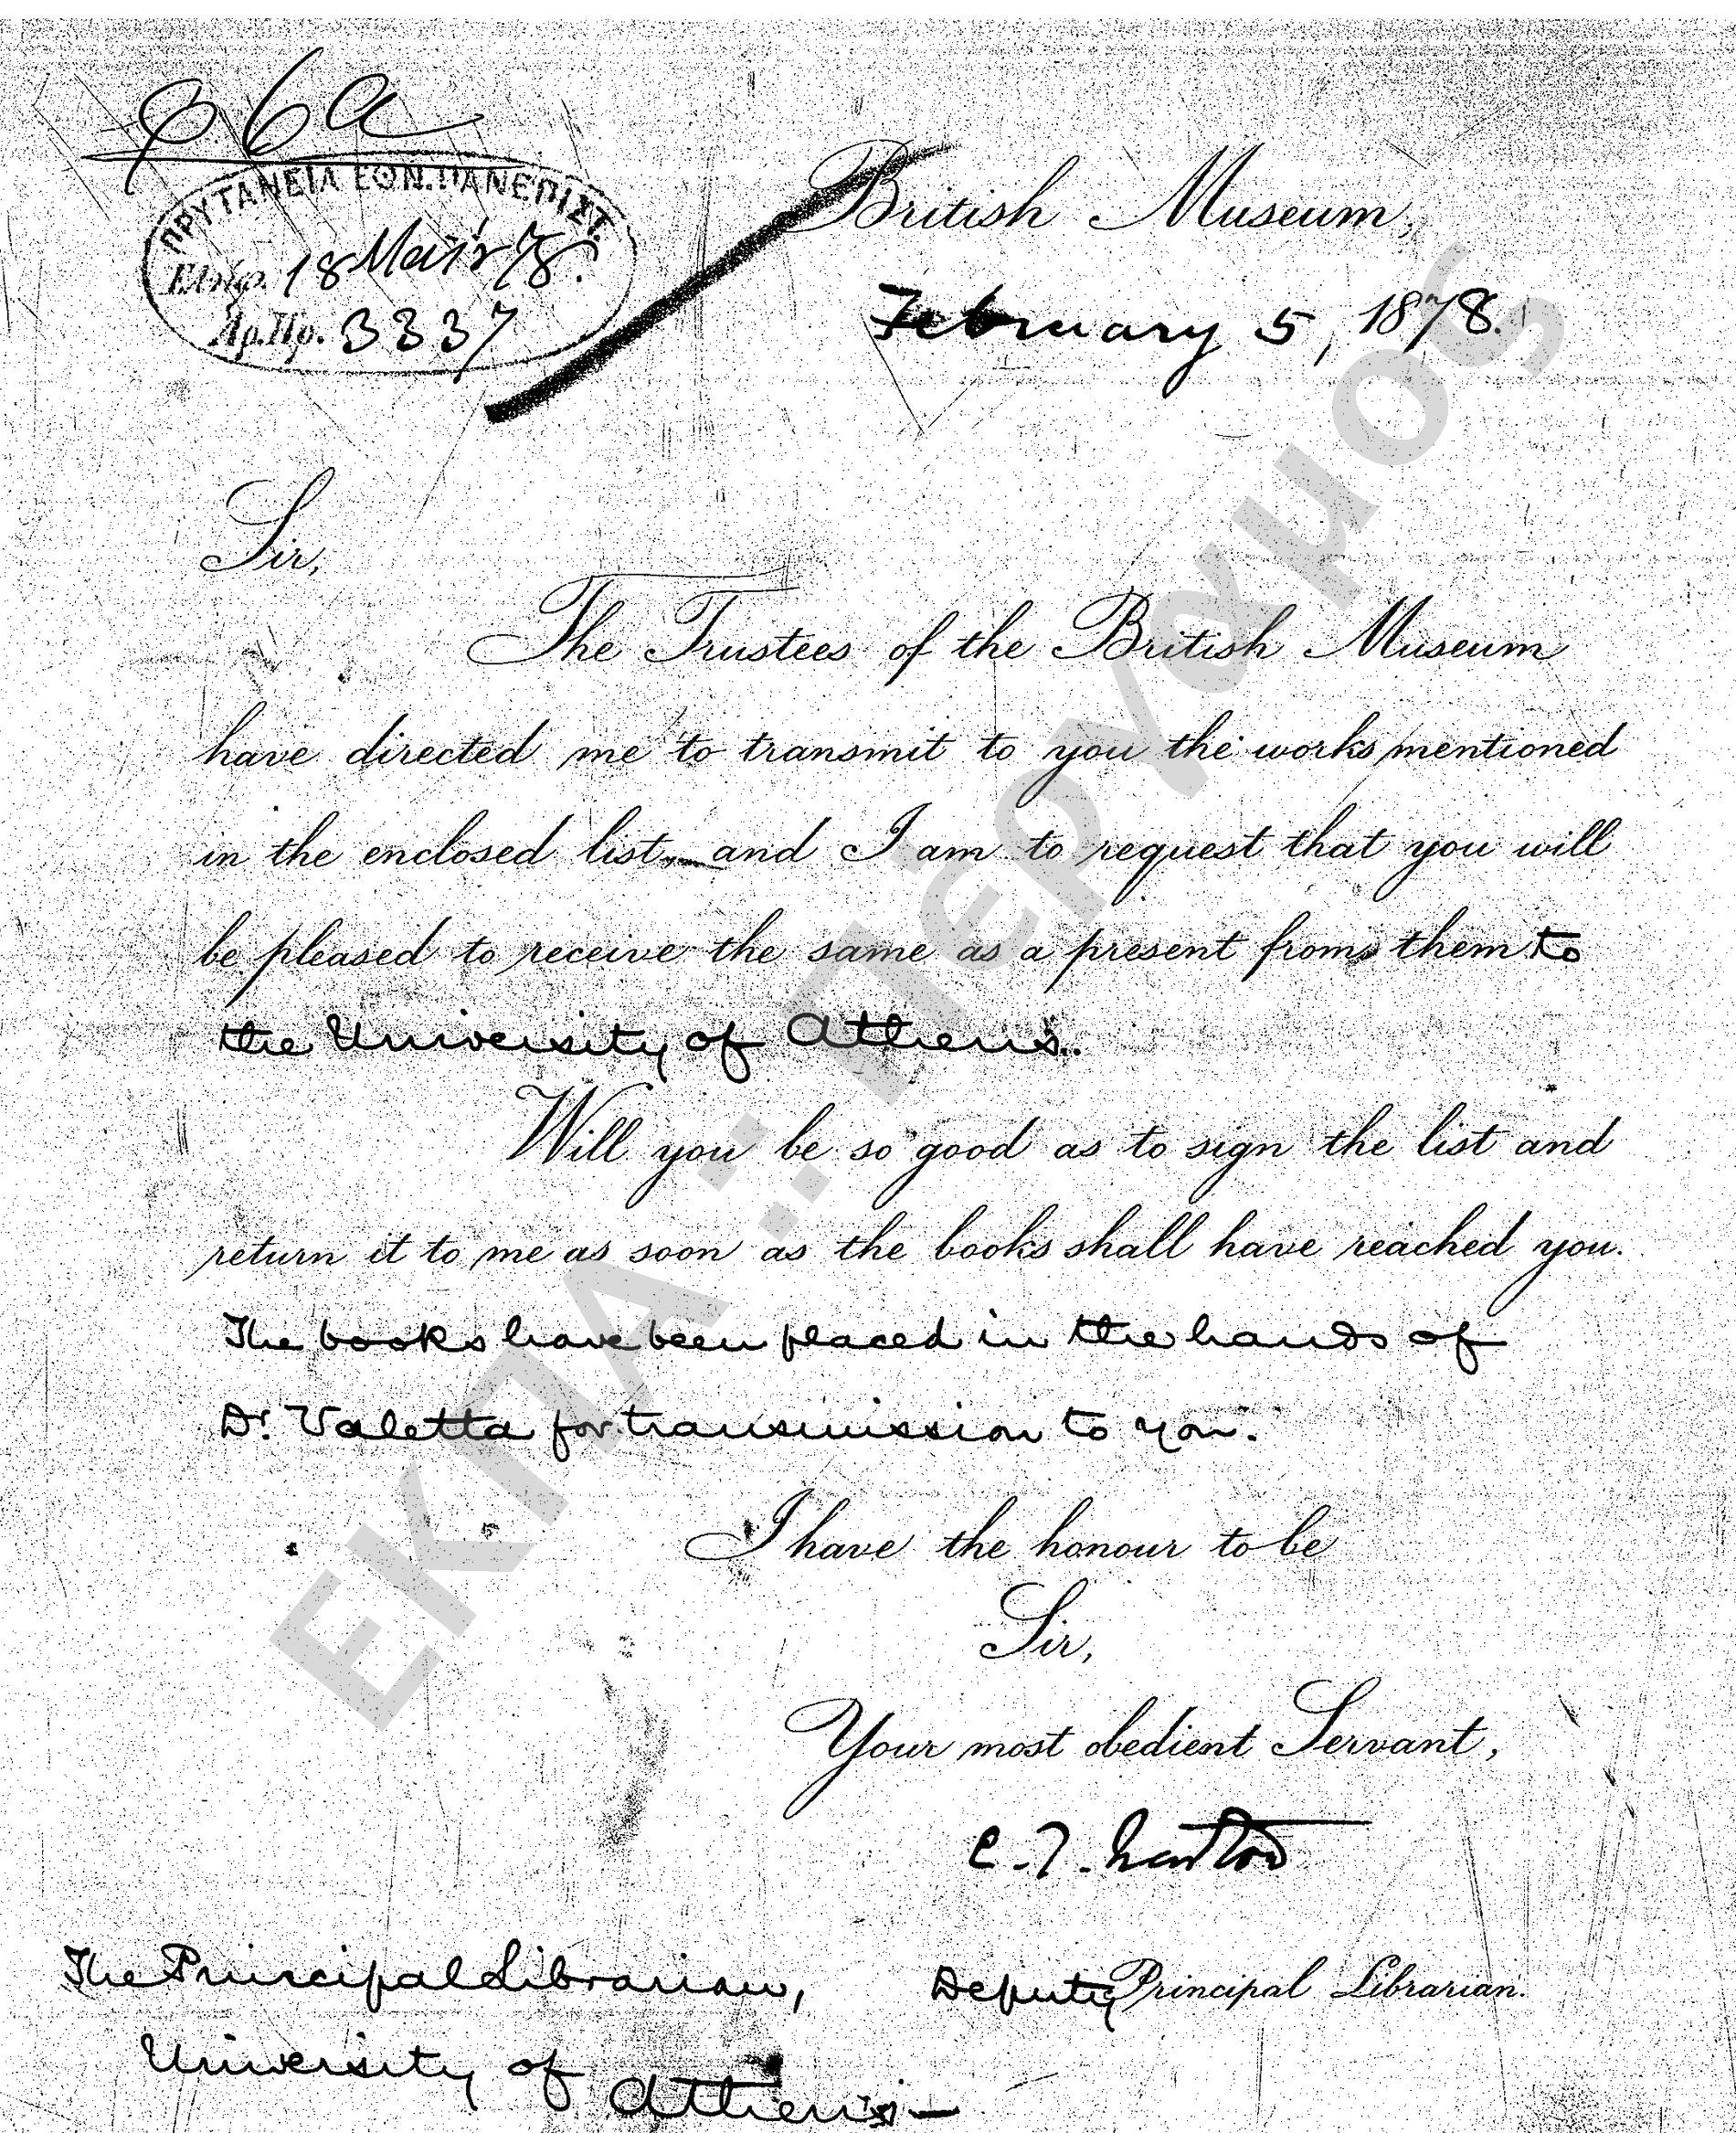 ΠΡΥΤΑΝΕΙΑ ΕΘΝ. ΠΑΝΕΠΙΣΤ.
18 Μαΐου 78.
Αρ.Πρ. 3337
British Museum,
February 5, 1878.
Sir,
The Trustees of the British Museum
have directed me to transmit to you the works mentioned
in the enclosed list, and I am to request that you will
be pleased to receive the same as a present from them to
the University of Athens.
Will you be so good as to sign the list and
return it to me as soon as the books shall have reached you.
The books have been placed in the hands of
Dr. Valetta for transmission to you.
I have the honour to be
Sir,
Your most obedient Servant,
C. T. Newton
Deputy Principal Librarian.
The Principal Librarian,
University of Athens—
ΕΚΠΑ :: Πέργαμος